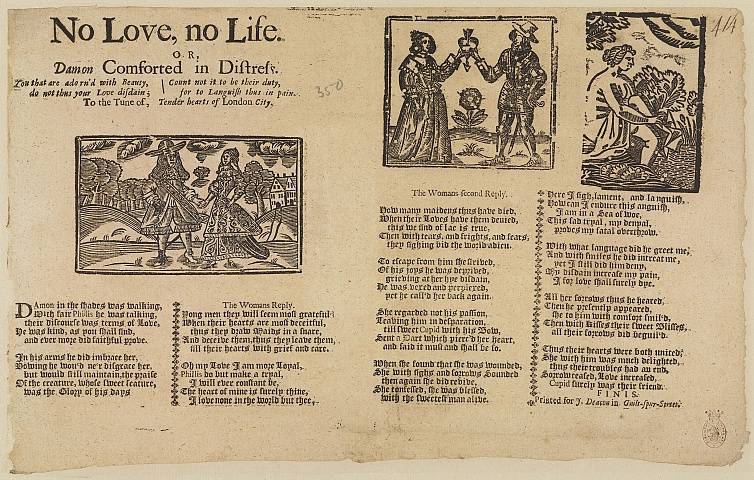 No Love, no Life.
OR,
Damon Comforted in Distress.
You that are adorn'd with Beauty,
do not thus your Love disdain;
Count not it to be their duty,
for to Languish thus in pain.
To the Tune of, Tender hearts of London City.
350
414
Damon in the shades was walking,
With fair Phillis he was talking,
their discourse was terms of Love,
He was kind, as you shall find,
and ever more did faithful prove.
In his arms he did imbrace her,
Vowing he wou'd ne'r disgrace her.
Phillis would still maintain, the praise
Of the creature, whose sweet feature,
was the Glory of his days
The Womans Reply.
Yong men they will seem most grateful
When their hearts are most deceitful,
thus they draw Maids in a snare,
And deceive them, thus they leave them,
fill their hearts with grief and care.
Oh my Love I am more Loyal,
Phillis do but make a tryal,
I will ever constant be,
The heart of mine is surely thine,
I love none in the world but thee,
The Womans second Reply.
How many maidens thus have died,
When their Loves have them denied,
this we find of late is true,
Then with tears, and frights, and fears,
they sighing bid the world adieu.
To escape from him she strived,
Of his joys he was deprived,
grieving at her hye disdain,
He was vexed and perplexed,
yet he call'd her back again.
She regarded not his passion,
Leaving him in desparation,
till sweet Cupid with his Bow,
Sent a Dart which pierc'd her heart,
and said it must and shall be so.
When she found that she was wounded,
She with sighs and sorrows Sounded
then again she did revive.
She confessed, she was blessed,
with the sweetest man alive.
Here I sigh, lament, and languish,
How can I endure this anguish,
I am in a Sea of woe,
This sad tryal, my denyal,
proves my fatal overthrow.
With what language did he greet me,
And with smiles he did intreat me,
yet I still did him deny,
My disdain increase my pain,
I for love shall surely dye.
All her sorrows thus he heared,
Then he presently appeared,
she to him with comfort smil'd,
Then with Kisses their sweet Blisses,
all their sorrows did beguil'd.
Thus their hearts were both united,
She with him was much delighted,
thus their troubles had an end,
Sorrow ceased, Love increased,
Cupid surely was their friend.
FINIS.
Printed for J. Deacon in Guilt-spur-Street.